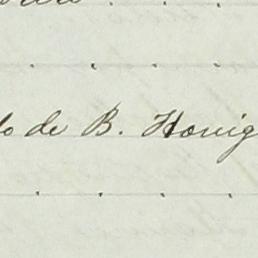 do de B. Honig